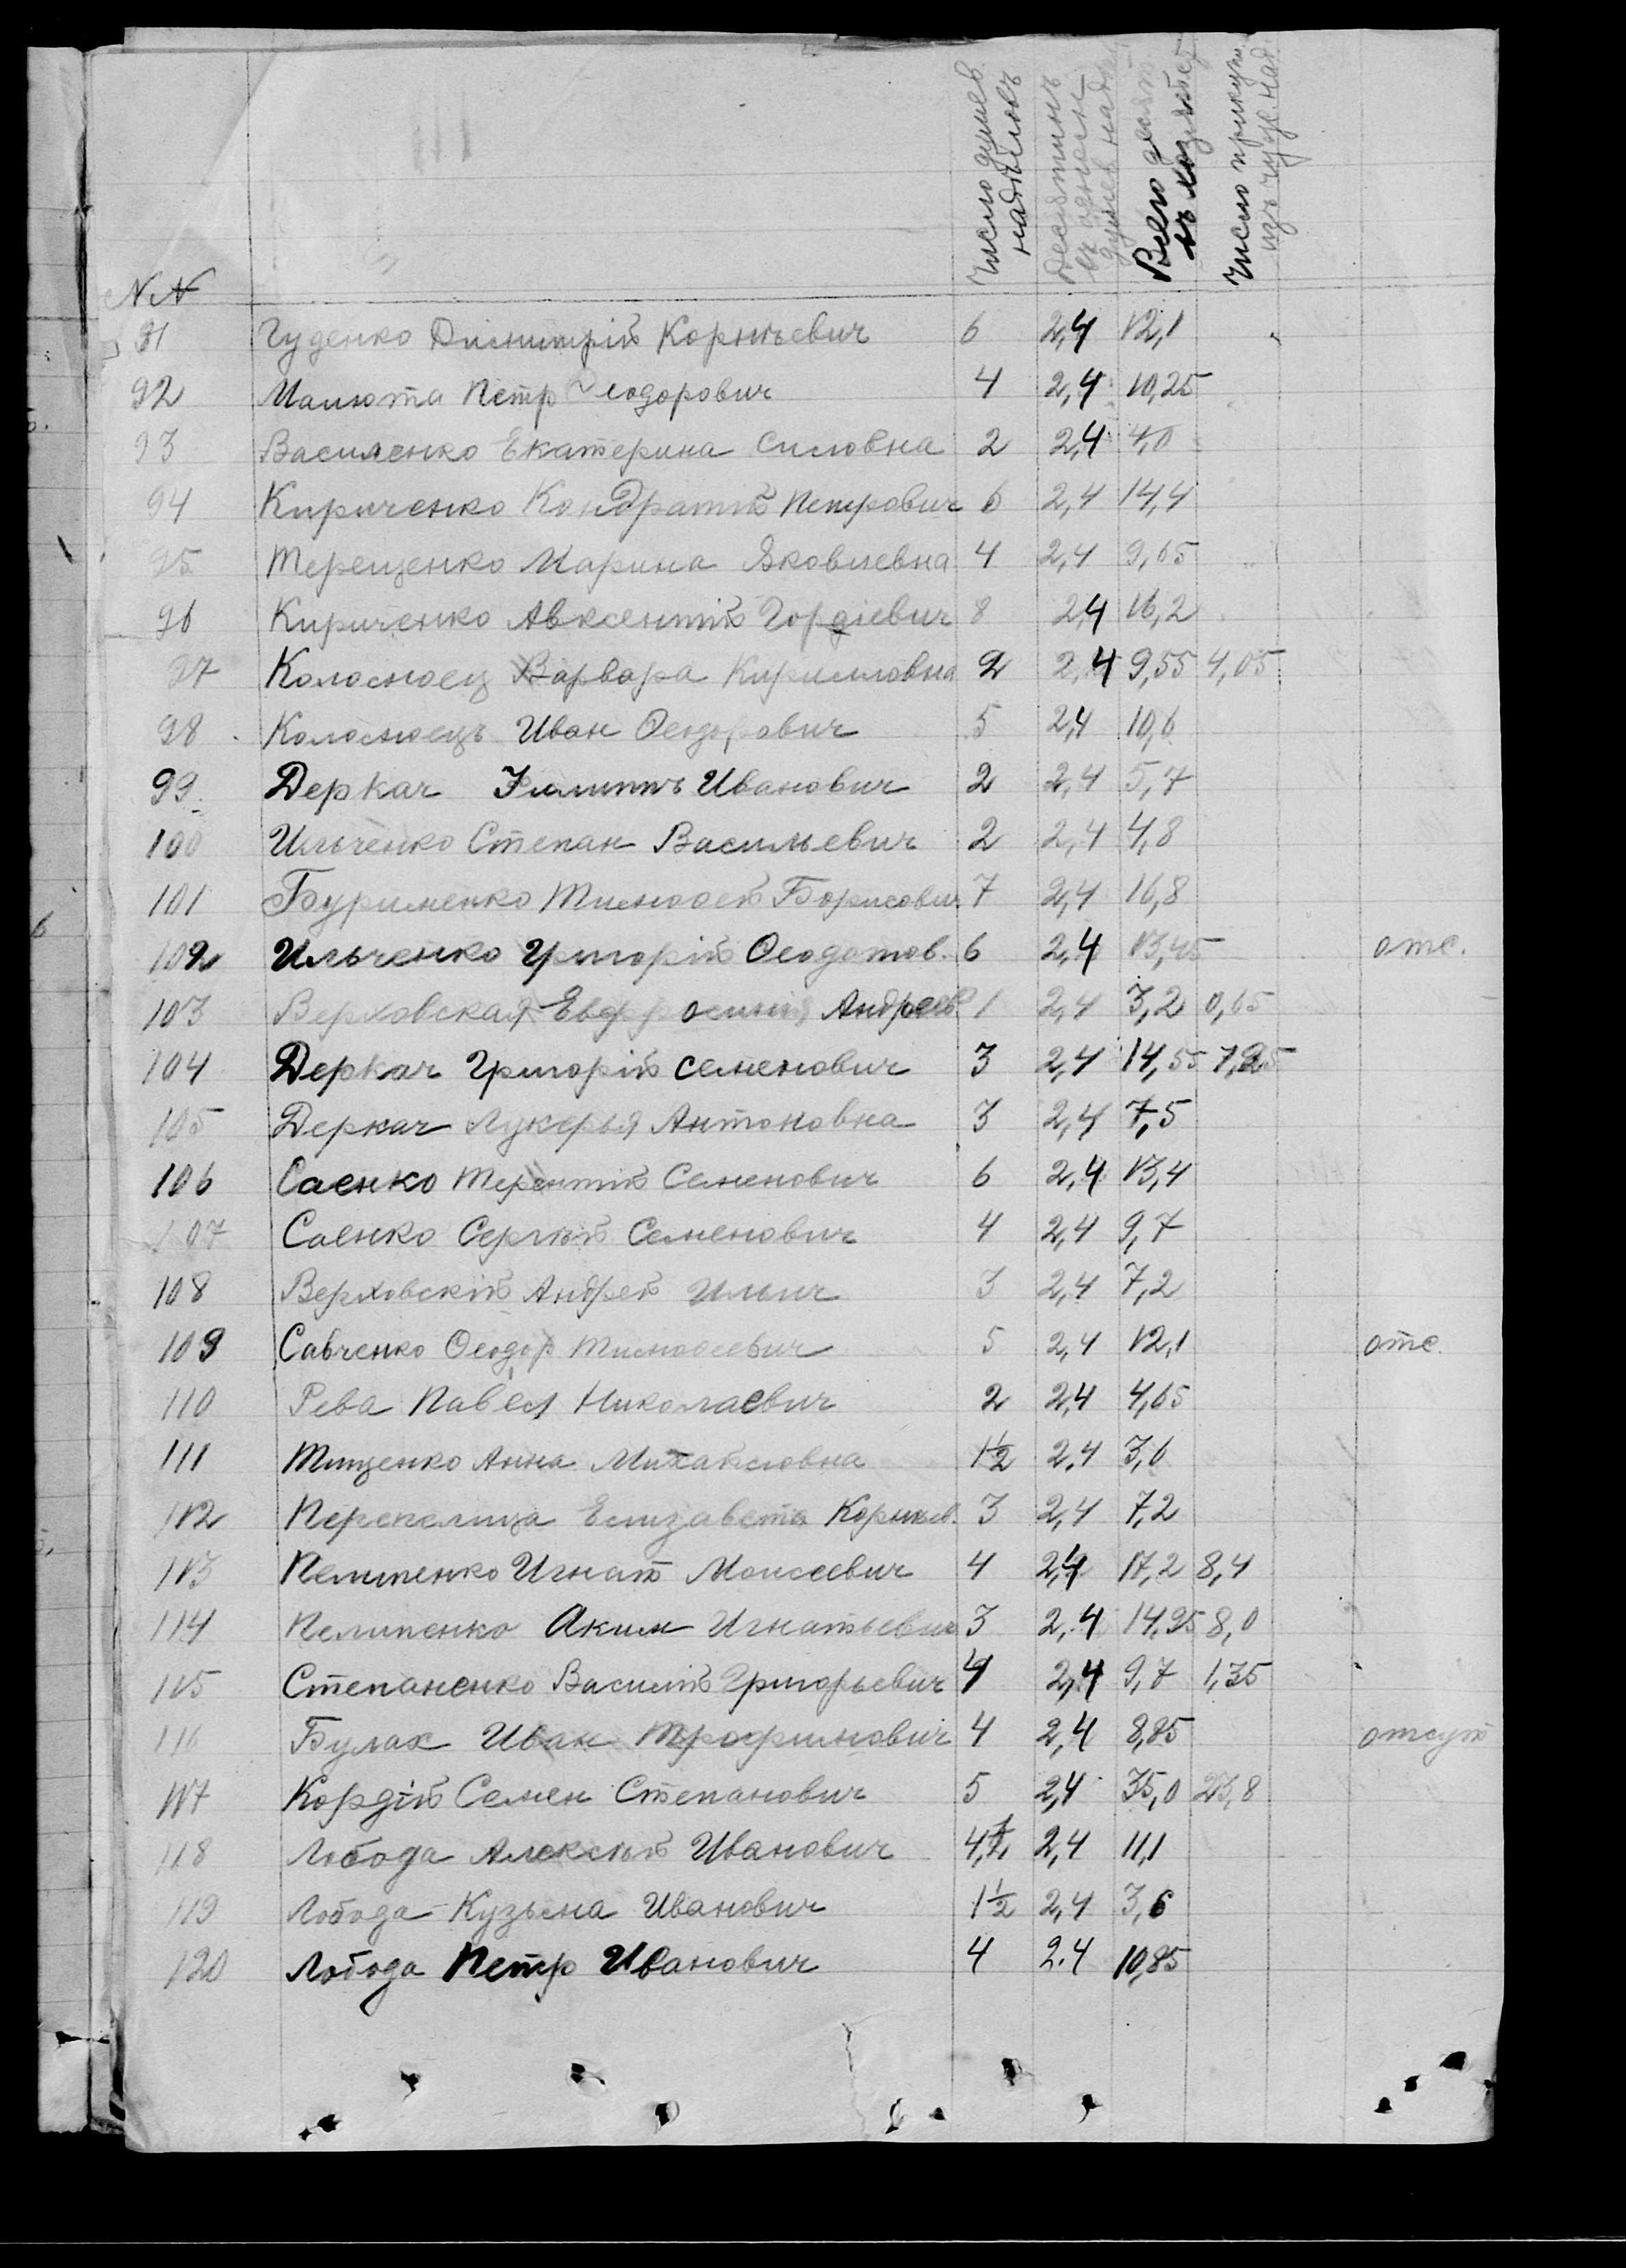 Число душев. надѣловъ
Десятинъ въ одномъ душев. над.
Всего десят. въ хозяйст.
Число прикупл. изъ чуж. над.
NN
91 Гуденко Димитрій Корнѣевич 6 2,4 12,1
92 Манюта Петр Феодорович 4 2,4 10,25
93 Василенко Екатерина Силовна 2 2,4 4,0
94 Кириченко Кондратій Петрович 6 2,4 14,4
95 Терещенко Марина Яковлевна 4 2,4 9,65
96 Кириченко Авксентій Гордіевич 8 2,4 16,2
97 Колосноец Варвара Кирилловна 2 2,4 9,55 4,05
98 Колосноецъ Иван Ѳеодорович 5 2,4 10,6
99 Деркач Филиппъ Иванович 2 2,4 5,7
100 Ильченко Степан Васильевич 2 2,4 4,8
101 Бурименко Тимофей Борисович 7 2,4 16,8
102 Ильченко Григорій Ѳеодотов. 6 2,4 13,45 отс.
103 Верховская Евфросинія Андреев. 1 2,4 3,2 0,65
104 Деркач Григорій Семенович 3 2,4 14,55 7,25
105 Деркач Лукерья Антоновна 3 2,4 7,5
106 Саенко Терентій Семенович 6 2,4 13,4
107 Саенко Сергѣй Семенович 4 2,4 9,7
108 Верховскій Андрей Ильич 3 2,4 7,2
109 Савченко Ѳеодор Тимофеевич 5 2,4 12,1 отс.
110 Рева Павел Николаевич 2 2,4 4,65
111 Тищенко Анна Михайловна 1½ 2.4 3,6
112 Перепелица Елизавета Корнѣев. 3 2,4 7,2
113 Пелипенко Игнат Моисеевич 4 2,4 17,2 8,4
114 Пелипенко Аким Игнатьевич 3 2,4 14,95 8,0
115 Степаненко Василій Григорьевич 4 2,4 9,7 1,35
116 Булах Иван Трофимович 4 2,4 8,85 отсут
117 Кордій Семен Степанович 5 2,4 35,0 23,8
118 Лобода Алексѣй Иванович 4½ 2,4 11,1
119 Лобода Кузьма Иванович 1½ 2,4 3,6
120 Лобода Петр Иванович 4 2.4 10,85